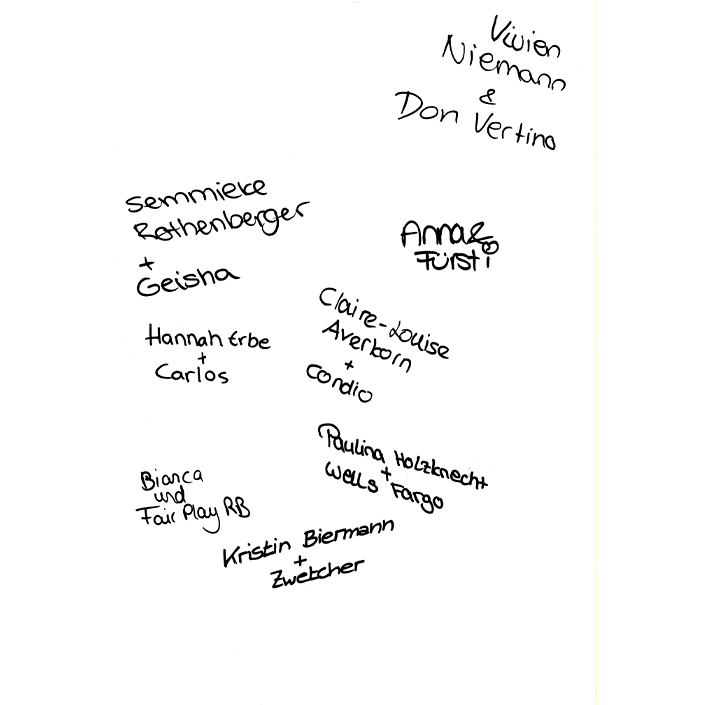 Vivien
Niemann
&
Don Vertino
Semmieke
Rothenberger
+
Geisha
Anna &
Fürsti
Claire-Louise
Averkorn
+
Condio
Hannah Erbe
+
Carlos
Paulina Holzknecht
+
Wells Fargo
Bianca
und
Fair Play RB
Kristin Biermann
+
Zwetcher